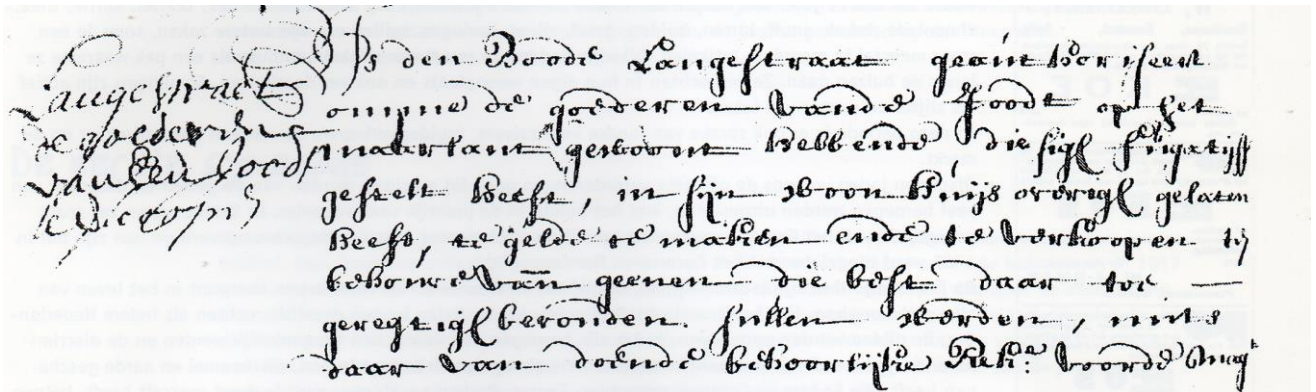 aangehaelt
de goederen
van den Jood
te Vercoopen
Is den Boode Langestraat geauthoriseert
omme de goederen vande Joodt op het
maarlant gewoont hebbende die sigh fugatijff
gestelt heeft, in sijn woon huijs overigh gelaten
heeft, te gelde te maken ende te verkoopen tij
behoeve van geenen die best daar toe
geregtigh bevonden sullen werden, mits
daar van doende behoorlijke voorde